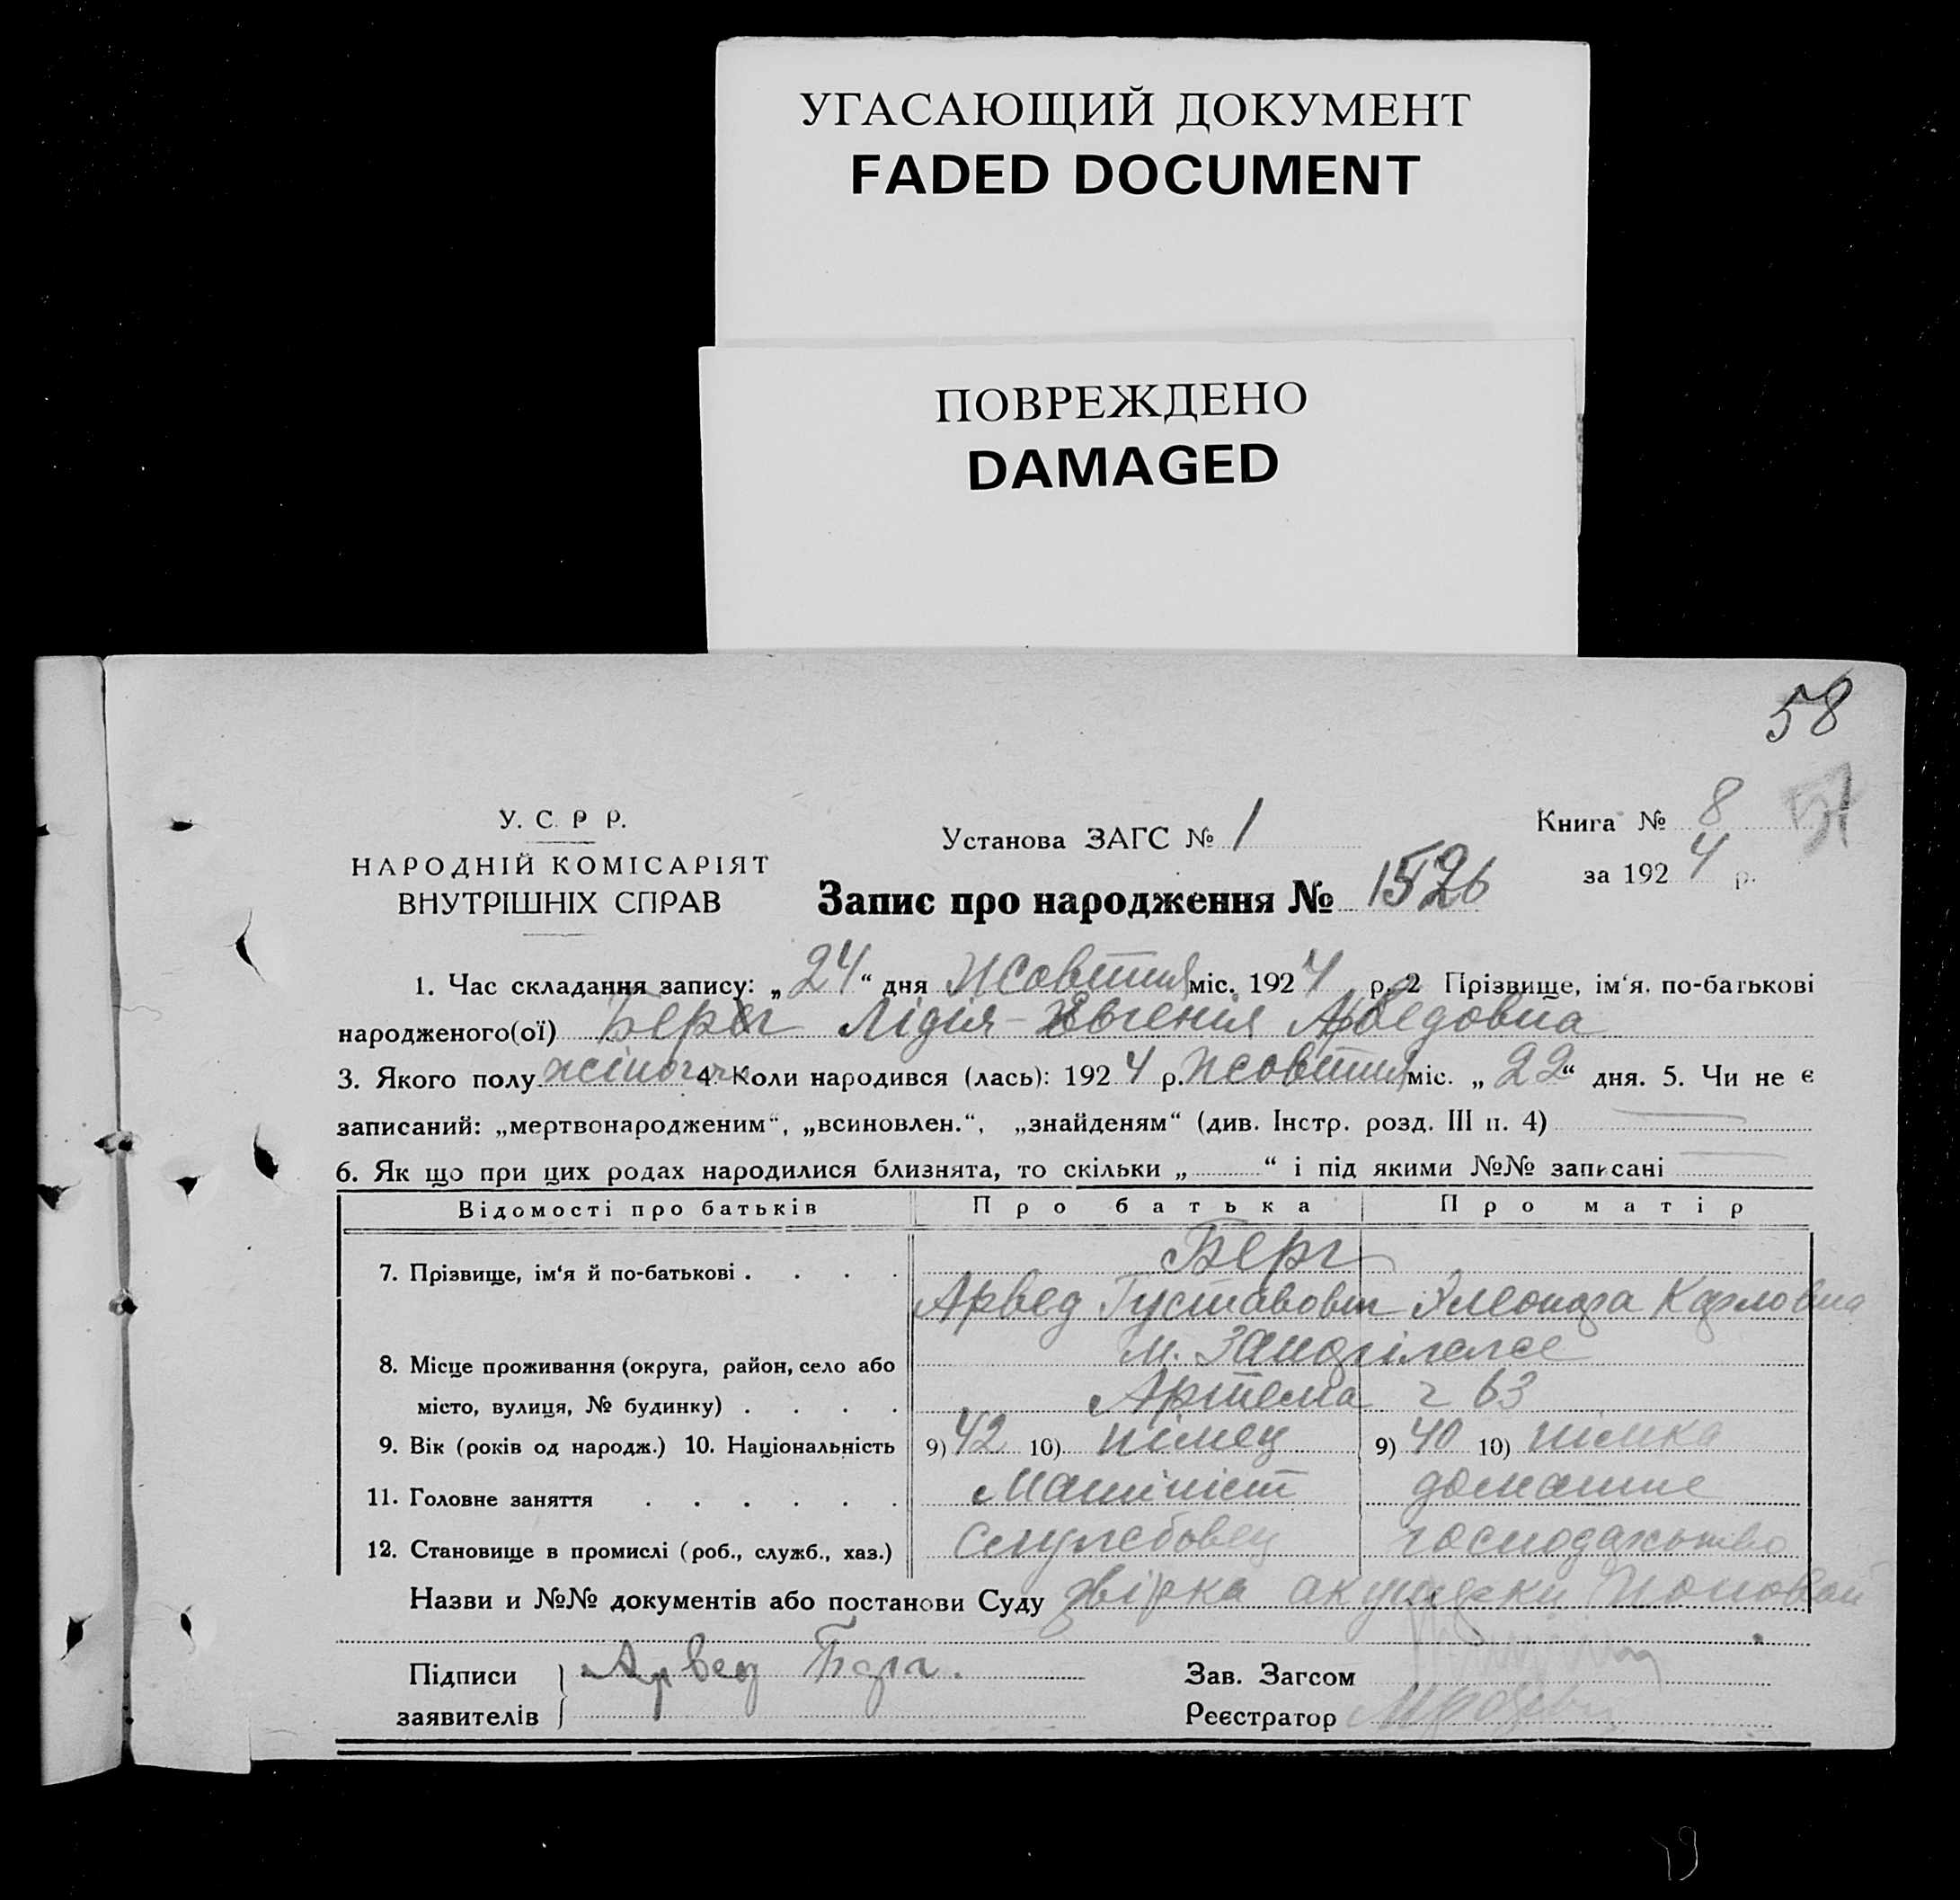 УГАСАЮЩИЙ ДОКУМЕНТ
FADED DOCUMENT
ПОВРЕЖДЕНО
DAMAGED
58
51
У. С. Р. Р.
НАРОДНІЙ КОМІСАРІЯТ
ВНУТРІШНІХ СПРАВ
Установа ЗАГС № 1
Книга № 8
за 1924 р.
Запис про народження № 1526
1. Час складання запису: „24“ дня Жовтня міс. 1924 р. 2 Прізвище, ім‘я, по-батькові
народженого(ої) Берг Лідія-Євгенія Арведовна
3. Якого полу жіночт 4 Коли народився (лась): 1924 р. Жовтня міс. „22“ дня. 5. Чи не є
записаний: „мертвонародженим“, „всиновлен.“, „знайденям“ (див. Інстр. розд. III п. 4)
6. Як що при цих родах народилися близнята, то скільки „ “ і під якими №№ записані
Відомості про батьків Про батька Про матір
7. Прізвище, ім‘я й по-батькові . . . . Берг
Арвед Густавович Элеонора Карловна
8. Місце проживання (округа, район, село або м.
місто, вулиця, № будинку) . . . . Артема ч 63
9. Вік (років од народж.) 10. Національність 9) 42 10) німец 9) 40 10) німка
11. Головне заняття . . . . . . Машініст домашне
12. Становище в промислі (роб., служб., хаз.) Служебовец господарьство
Назви и №№ документів або постанови Суду звірка акушерки Поповой
Підписи Арвед Берг. Зав. Загсом
заявителів Реєстратор